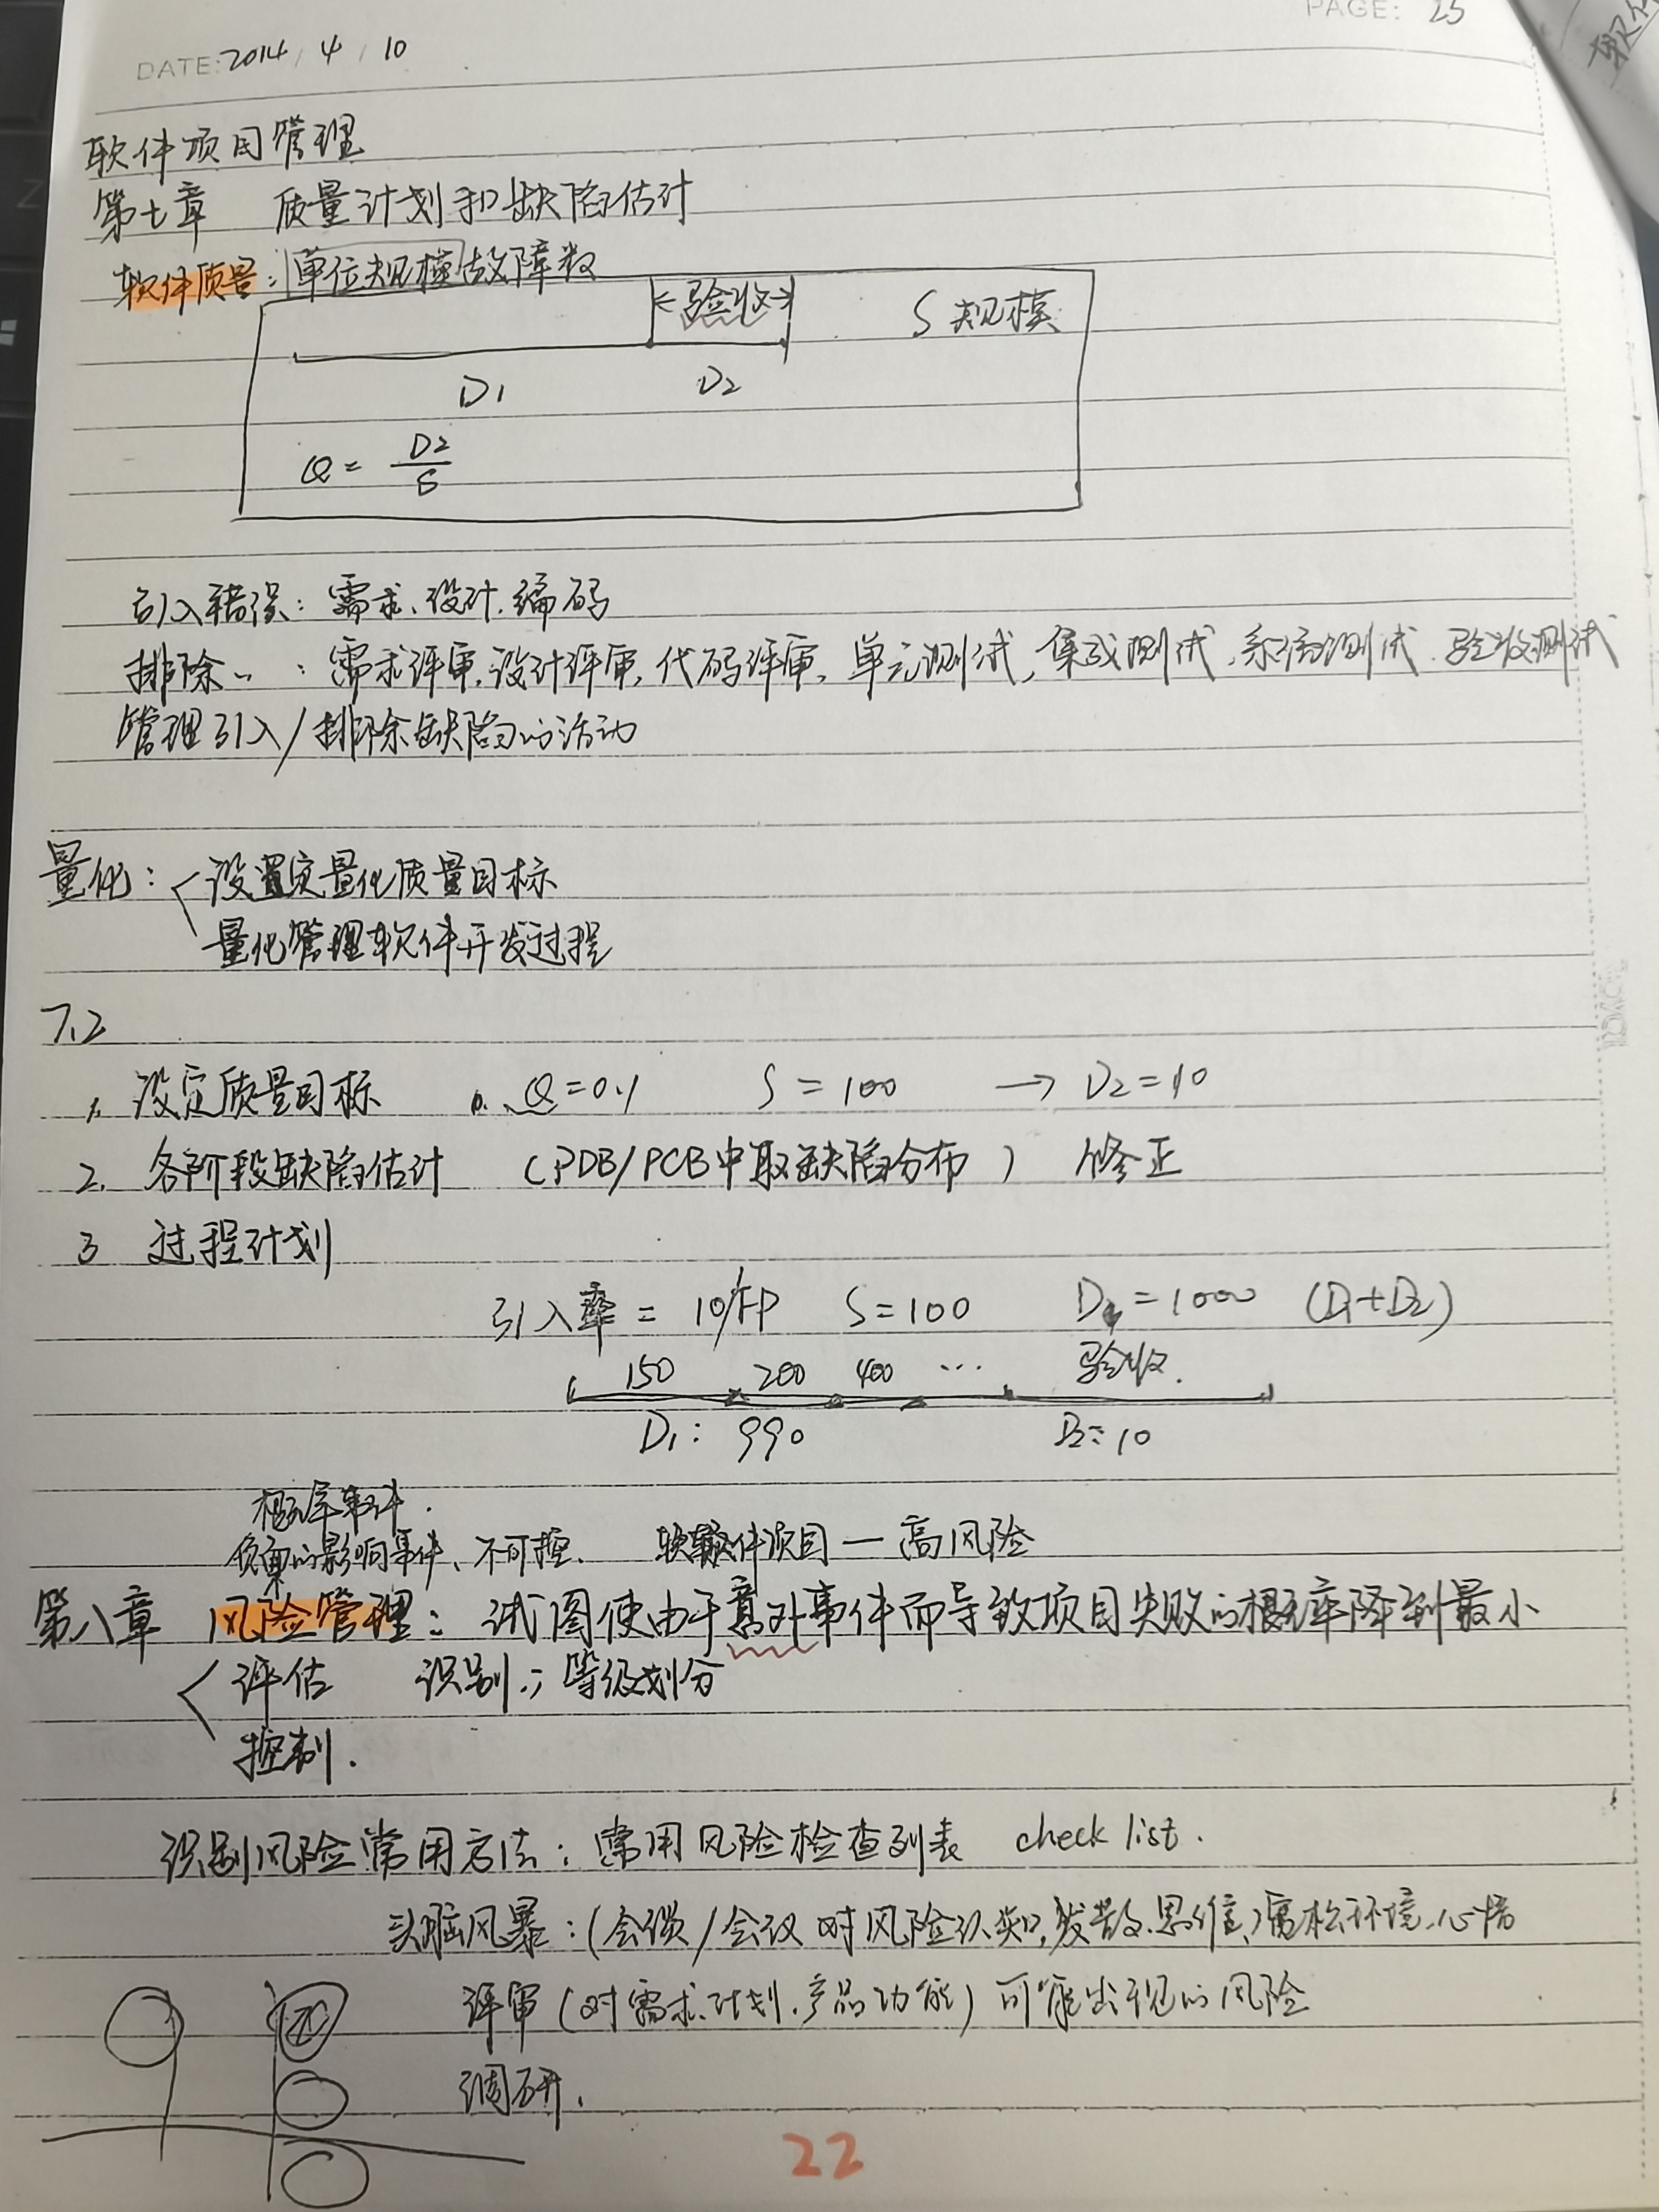 PAGE: 25
DATE: 2014 / 4 / 10
软件项目管理
第七章 质量计划和缺陷估计
软件质量:单位规模故障数
验收 S 规模
D1 D2
Q = D2/S
引入错误:需求、设计、编码
排除〃:需求评审,设计评审,代码评审,单元测试,集成测试,系统测试、验收测试
管理引入/排除缺陷的活动
量化:设置定量化质量目标
量化管理软件开发过程
7.2
1. 设定质量目标 Q=0.1 S=100 → D2=10
2. 各阶段缺陷估计 (PDB/PCB中取缺陷分布) 修正
3 过程计划
引入率 = 10/FP S=100 D=1000 (D1+D2)
150 200 400 … 验收.
D1: 990 D2: 10
概率事件.
负面的影响事件、不可控. 软件项目—高风险
第八章 风险管理:试图使由于意外事件而导致项目失败的概率降到最小
评估 识别;等级划分
控制.
识别风险常用方法:常用风险检查列表 check list.
头脑风暴:(会谈/会议 对风险认知,发散思维,)宽松环境,心情
评审(对需求、计划、产品功能)可能出现的风险
调研.
22